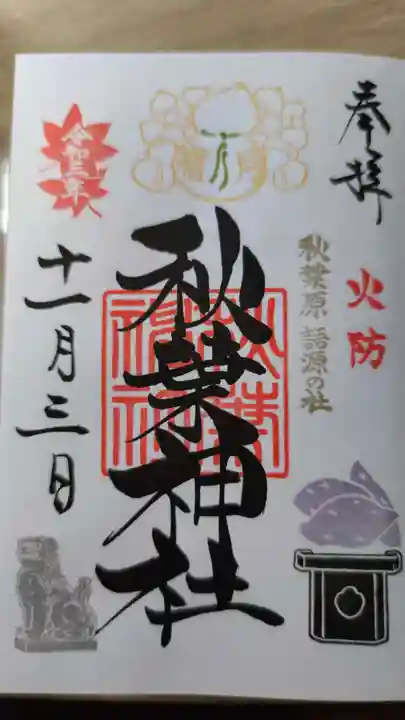 奉拝
火防
秋葉原 語源の社
秋葉神社
秋葉
神社
令和三年
十一月三日